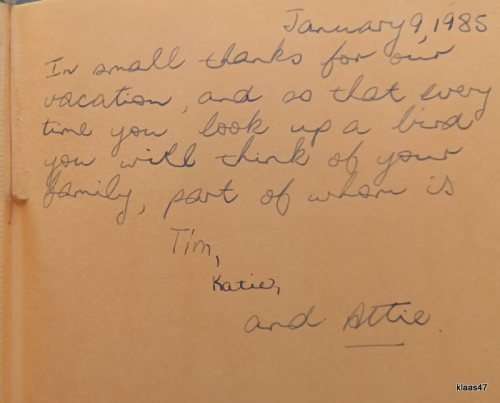 January 9, 1985
In small thanks for our
vacation, and so that every
time you look up a bird
you will think of your
family, part of whom is
Tim,
Katie,
and Attie.
klaas47